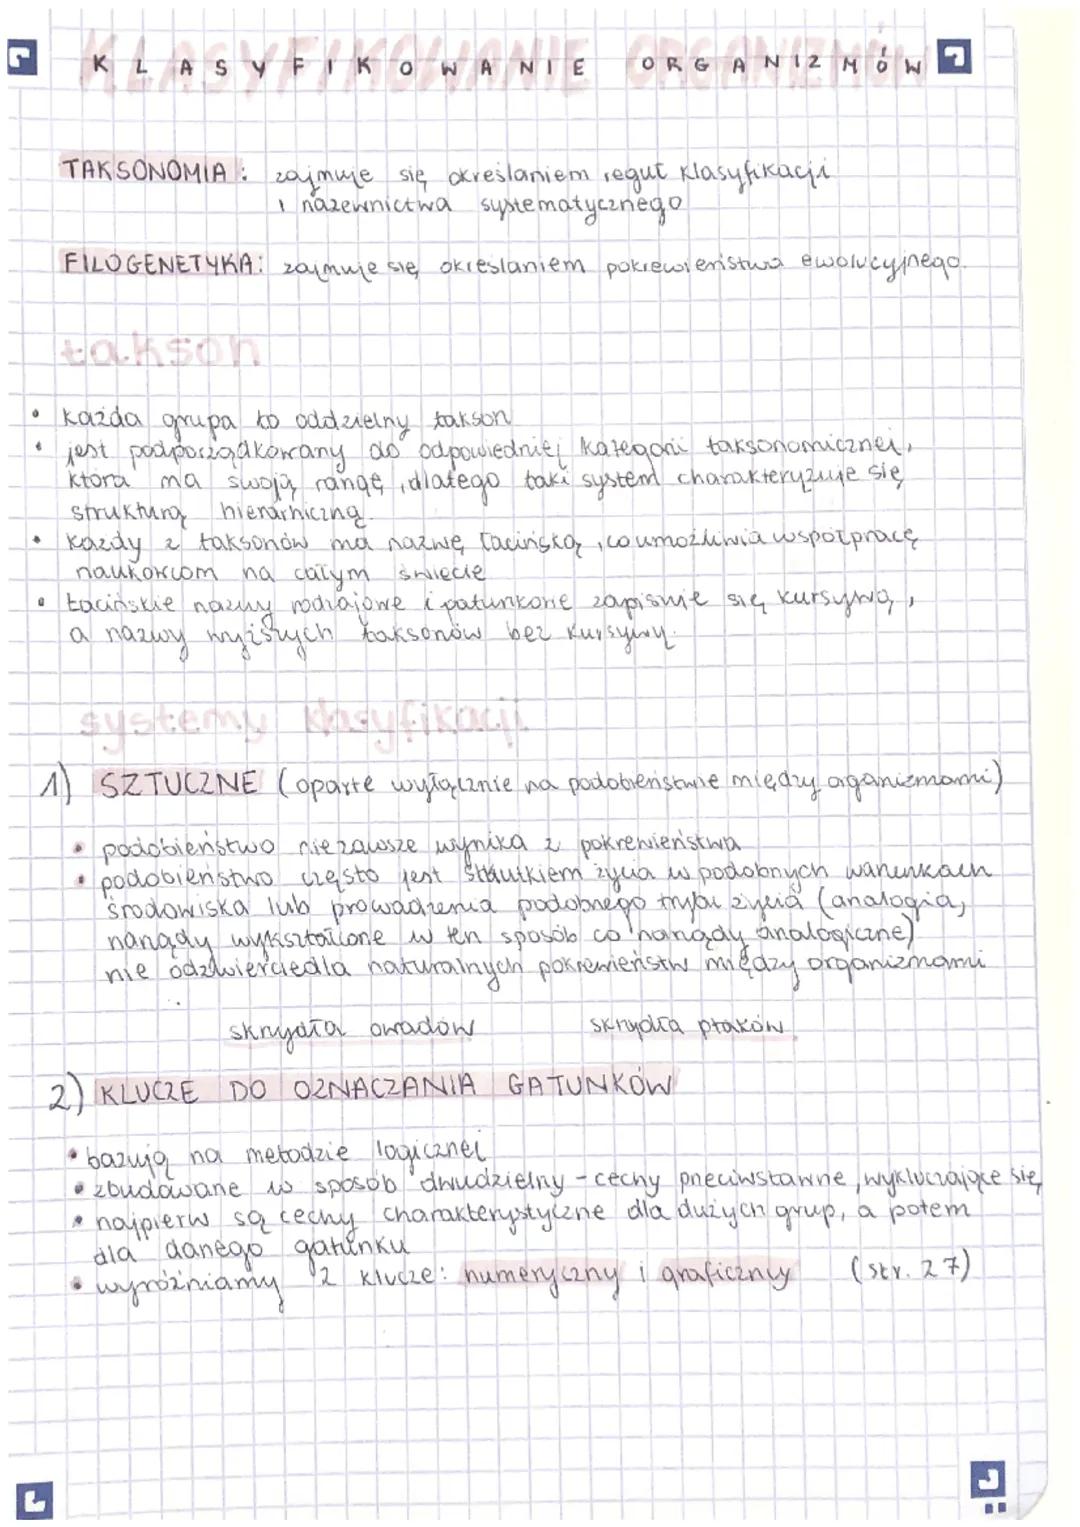 KLASYFIKOWANIE ORGANIZMÓW
TAKSONOMIA: zajmuje się określaniem reguł klasyfikacji
i nazewnictwa systematycznego
FILOGENETYKA: zajmuje się określaniem pokrewieństwa ewolucyjnego.
takson
• każda grupa to oddzielny takson
• jest podporządkowany do odpowiedniej kategorii taksonomicznej,
która ma swoją rangę, dlatego taki system charakteryzuje się
strukturą hierarhiczną.
• każdy z taksonów ma nazwę łacińską, co umożliwia współpracę
naukowcom na całym świecie
• łacińskie nazwy rodzajowe i gatunkowe zapisuje się kursywą,
a nazwy wyższych taksonów bez kursywy.
systemy klasyfikacji
1) SZTUCZNE (oparte wyłącznie na podobieństwie między organizmami)
• podobieństwo nie zawsze wynika z pokrewieństwa
• podobieństwo często jest skutkiem życia w podobnych warunkach
środowiska lub prowadzenia podobnego trybu życia (analogia,
narządy wykształcone w ten sposób co narządy analogiczne)
nie odzwierciedla naturalnych pokrewieństw między organizmami
skrzydła owadów skrzydła ptaków
2) KLUCZE DO OZNACZANIA GATUNKÓW
• bazują na metodzie logicznej
• zbudowane w sposób dwudzielny - cechy przeciwstawne, wykluczające się
• najpierw są cechy charakterystyczne dla dużych grup, a potem
dla danego gatunku
• wyróżniamy 2 klucze: numeryczny i graficzny (str. 27)